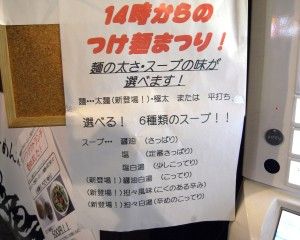 14時からの
つけ麺まつり!
麺の太さ・スープの味が
選べます!
麺…太麺(新登場!)・極太 または 平打ち
選べる! 6種類のスープ!!
スープ… 醤油 (さっぱり)
塩 (定番さっぱり)
塩白湯 (少しこってり)
(新登場!)醤油白湯 (こってり)
(新登場!)担々風味(こくのある辛み)
(新登場!)担々白湯(辛めのこってり)